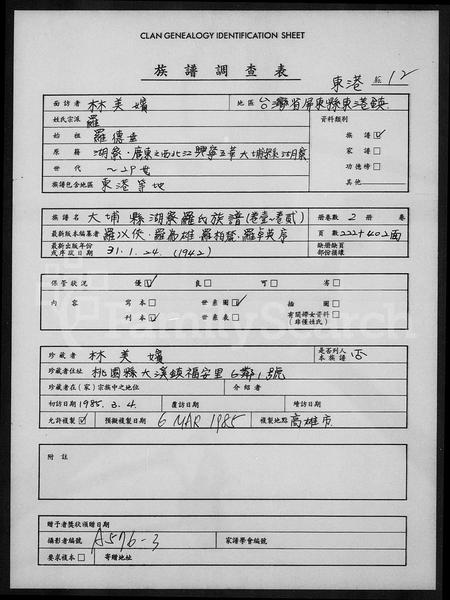 CLAN GENEALOGY IDENTIFICATION SHEET
族譜調查表
東港 12
面訪者 林美嬪 地區 台灣省屏東縣東港鎮
姓氏宗派 羅 資料類別
始祖 羅德 族譜☑
原籍 湖寮·廣東之西北江興寧五華大埔縣湖寮 家譜□
世代 ~29世 功德榜□
族譜包含地區 東港等地 其他
族譜名 大埔縣湖寮羅氏族譜(卷壹~卷貳) 册卷數 2 册卷
最新版本編纂者 羅以俠·羅為雄·羅柏·羅卓英序 頁數 222+402面
最新出版年份或序跋日期 31.1.24. (1942) 缺册缺頁部份描煤
保管狀况 優☑ 良□ 可□ 劣□
內容 寫本□ 世系圖☑ 插圖□
刊本☑ 世系表□ 有關婦女資料□ (非僅姓氏)
FamilySearch
珍藏者 林美嬪 是否列入本族譜 否
珍藏者住址 桃園縣大溪鎮福安里6鄰1號
珍藏者在(家)宗族中之地位 介紹者
初訪日期 1985.3.4. 覆訪日期 續訪日期
允許複製☑ 預擬複製日期 6 MAR 1985 複製地點 高雄市
附註
贈予者獎狀頒贈日期
攝影者編號 A576-3 家譜學會編號
要求複本□ 寄贈地址